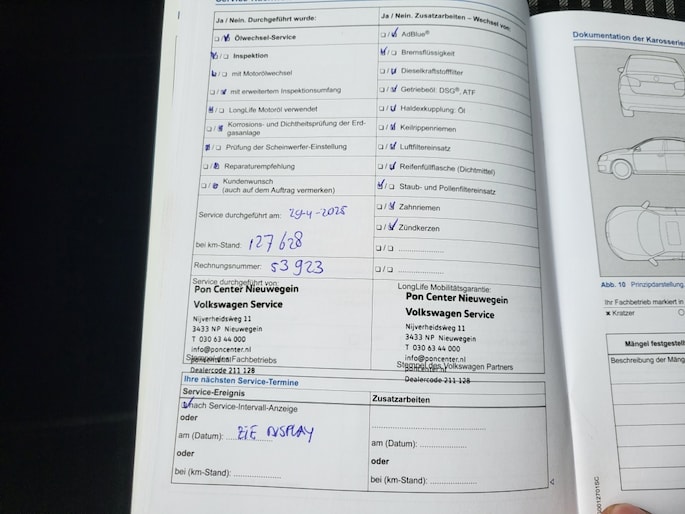 Ja / Nein. Durchgeführt wurde:
Ja / Nein. Zusatzarbeiten – Wechsel von:
Ölwechsel-Service
Inspektion
mit Motorölwechsel
mit erweitertem Inspektionsumfang
LongLife Motoröl verwendet
Korrosions- und Dichtheitsprüfung der Erd-
gasanlage
Prüfung der Scheinwerfer-Einstellung
Reparaturempfehlung
Kundenwunsch
(auch auf dem Auftrag vermerken)
AdBlue®
Bremsflüssigkeit
Dieselkraftstofffilter
Getriebeöl: DSG®, ATF
Haldexkupplung: Öl
Keilrippenriemen
Luftfiltereinsatz
Reifenfüllflasche (Dichtmittel)
Staub- und Pollenfiltereinsatz
Zahnriemen
Zündkerzen
Service durchgeführt am: 29-4-2025
bei km-Stand: 127628
Rechnungsnummer: 53923
Service durchgeführt von:
Pon Center Nieuwegein
Volkswagen Service
Nijverheidsweg 11
3433 NP Nieuwegein
T 030 63 44 000
info@poncenter.nl
poncenter.nl
Stempel des Fachbetriebs
Dealercode 211 128
LongLife Mobilitätsgarantie:
Pon Center Nieuwegein
Volkswagen Service
Nijverheidsweg 11
3433 NP Nieuwegein
T 030 63 44 000
info@poncenter.nl
poncenter.nl
Stempel des Volkswagen Partners
Dealercode 211 128
Ihre nächsten Service-Termine
Service-Ereignis
nach Service-Intervall-Anzeige
oder
am (Datum): ZIE DISPLAY
oder
bei (km-Stand):
Zusatzarbeiten
am (Datum):
oder
bei (km-Stand):
Dokumentation der Karosserie
Abb. 10 Prinzipdarstellung.
Ihr Fachbetrieb markiert in
× Kratzer
Mängel festgestell
Beschreibung der Mäng